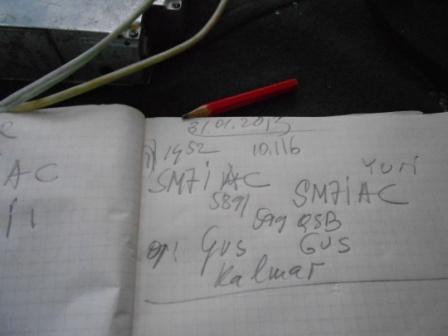 AC
31.01.2013
1952 10.116
SM7IAC YURI
SM7IAC
589/
599 QSB
op: Gus GUS
Kalmar